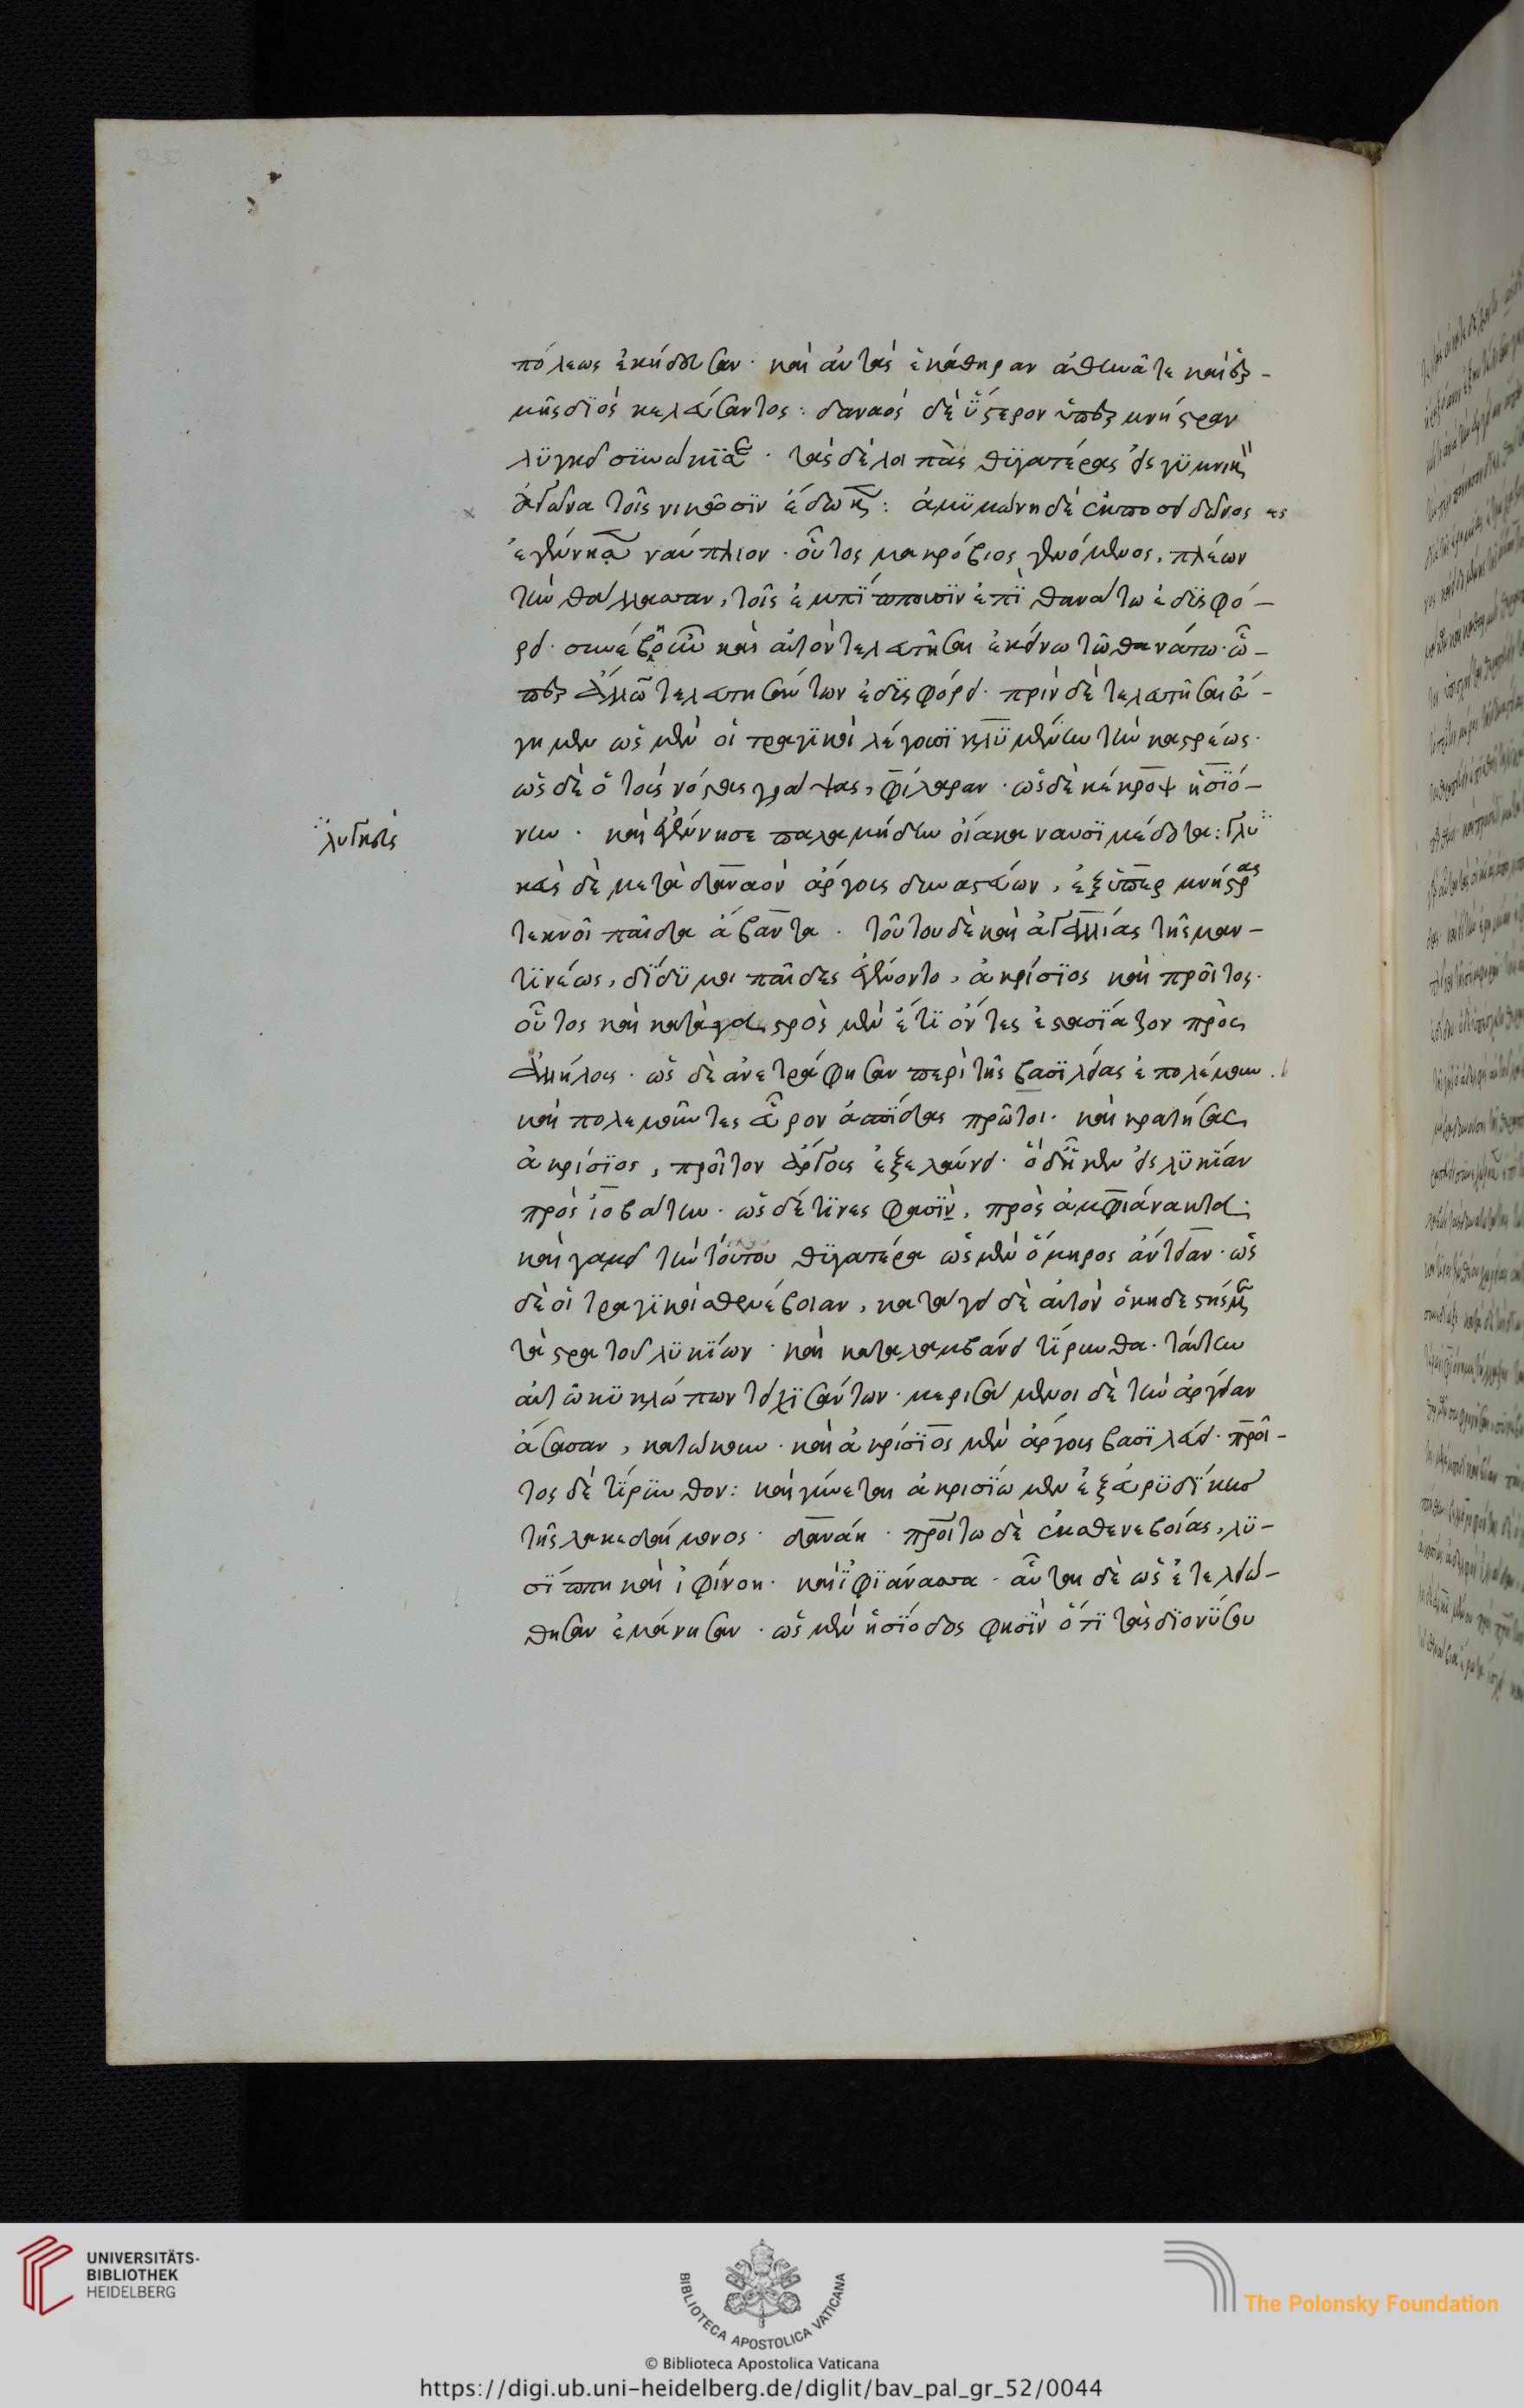 πόλεως ἐκήδευσαν· καὶ αὐτὰς ἐκάθηραν ἀθηνᾶ τε καὶ ἑρ-
μῆς διὸς κελεύσαντος: δαναὸς δὲ ὕστερον ὑπερμνήστραν
λϋγκεῖ συνώκισε· τὰς δὲ λοιπὰς θϋγατέρας εἰς γϋμνικὸν
ἀγῶνα τοῖς νικῶσιν ἔδωκεν: ἀμϋμώνη δὲ ἐκ ποσειδῶνος
ἐγέννησε ναύπλιον· οὗτος μακρόβιος γενόμενος, πλέων
τὴν θάλλασσαν, τοῖς ἐμπίπτουσιν ἐπὶ θανάτω ἐδϋσφό-
ρει· συνέβη οὖν καὶ αὐτὸν τελευτῆσαι ἐκείνω τῶ θανάτω· ὧ-
περ ἄλλων τελευτησάντων ἐδϋσφόρει· πρὶν δὲ τελευτῆσαι ἔ-
γημεν ὡς μὲν οἱ τραγικοὶ λέγουσι κλϋμένην τὴν κατρέως·
ὡς δὲ ὁ τοὺς νόστους γράψας, φίλυραν· ὡς δὲ κέκροψ ἡσϊό-
νην· καὶ ἐγέννησε παλαμήδην οἴακα ναυσϊμέδοντα: Γλυ
λυγκεὺς
κεὺς δὲ μετὰ δαναὸν ἄργους δυναστεύων, ἐξ ὑπερμνήστρας
τεκνοῖ παῖδα ἄβαντα· τούτου δὲ καὶ ἀγαλλίας τῆς μαν-
τϊνέως, δίδϋμοι παῖδες ἐγένοντο, ἀκρίσϊος καὶ προῖτος·
οὗτοι καὶ κατὰ γαστρὸς μὲν ἔτι ὄντες ἐστασίαζον πρὸς
ἀλλήλους· ὡς δὲ ἀνετράφησαν περὶ τῆς βασϊλείας ἐπολέμουν·
καὶ πολεμοῦντες εὗρον ἀσπίδας πρῶτοι· καὶ κρατήσας
ἀκρίσϊος, προῖτον ἄργους ἐξελαύνει· ὁ δ' ἧκεν εἰς λϋκίαν
πρὸς ἰοβάτην· ὡς δέ τινες φασὶν, πρὸς ἀμφιάνακτα·
καὶ γαμεῖ τὴν τούτου θϋγατέρα ὡς μὲν ὅμηρος ἄντειαν· ὡς
δὲ οἱ τραγϊκοὶ σθενέβοιαν, κατάγει δὲ αὐτὸν ὁ κηδεστὴς μετὰ
τὰ στρατοῦ λϋκίων· καὶ καταλαμβάνει τίρυνθα· ταύτην
αὐτῶ κϋκλώπων τειχϊσάντων· μερισάμενοι δὲ τὴν ἀργείαν
ἅπασαν, κατώκουν· καὶ ἀκρίσϊος μὲν ἄργους βασϊλεύει· προῖ-
τος δὲ τίρυνθον: καὶ γίνεται ἀκρισϊω μὲν ἐξ εὐρυδίκης
τῆς λακεδαίμονος· δανάη· προίτω δὲ ἐκ σθενεβοίας, λϋ-
σίππη καὶ ἰφινόη· καὶ ἰφϊάνασσα· αὗται δὲ ὡς ἐτελειώ-
θησαν ἐμάνησαν· ὡς μὲν ἡσίοδος φησὶν ὅτι τὰς διονύσου
UNIVERSITÄTS-
BIBLIOTHEK
HEIDELBERG
BIBLIOTECA APOSTOLICA VATICANA
The Polonsky Foundation
© Biblioteca Apostolica Vaticana
https://digi.ub.uni-heidelberg.de/diglit/bav_pal_gr_52/0044